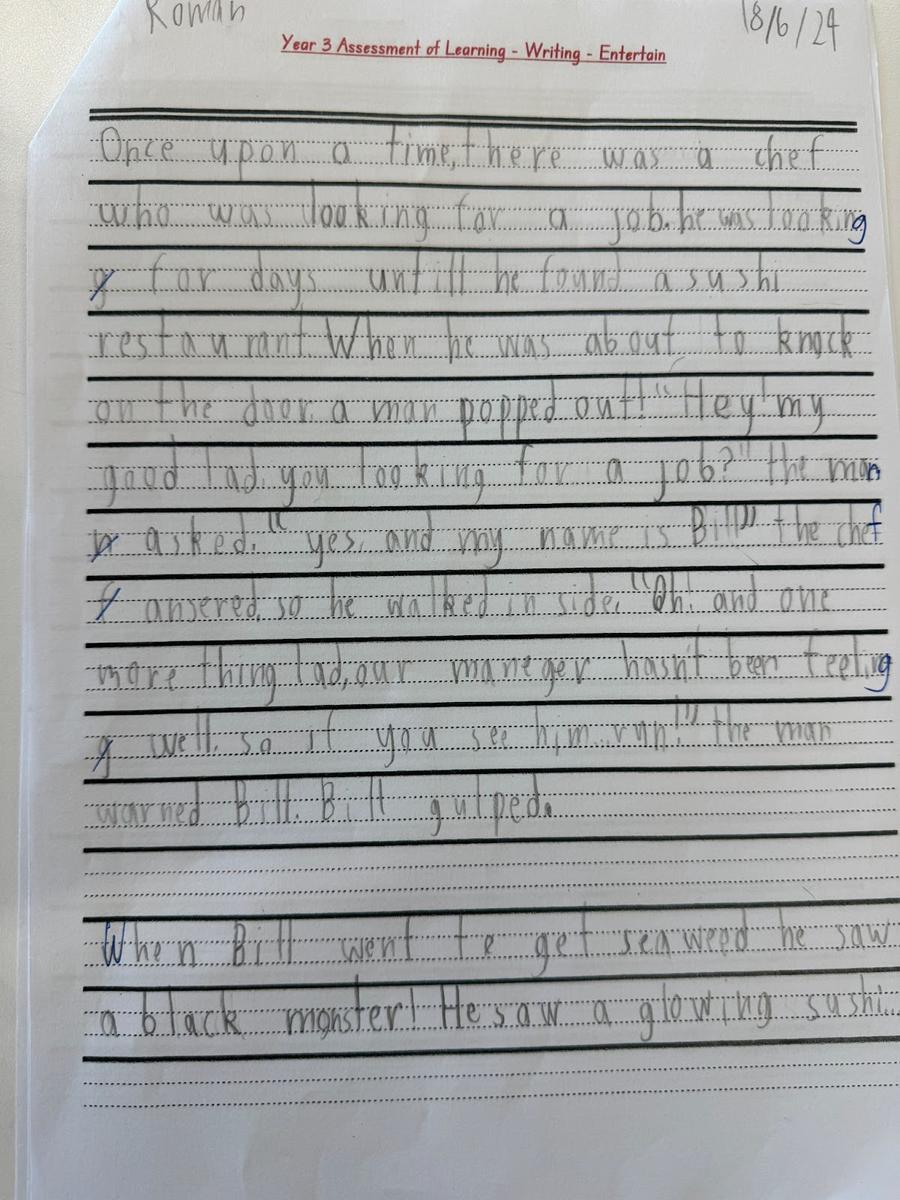 Roman 18/6/24
Year 3 Assessment of Learning - Writing - Entertain
Once upon a time, there was a chef
who was looking for a job. he was looking
g for days untill he found a sushi
restaurant. When he was about to knock
on the door, a man popped out! "Hey! my
good lad, you looking for a job?" the man
n asked. "yes, and my name is Bill" the chef
f ansered, so he walked in side. "Oh! and one
more thing lad, our maneger hasn't been feeling
g well, so if you see him...run!" the man
warned Bill. Bill gulped.
When Bill went te get sea weed he saw
a black monster! He saw a glowing sushi...